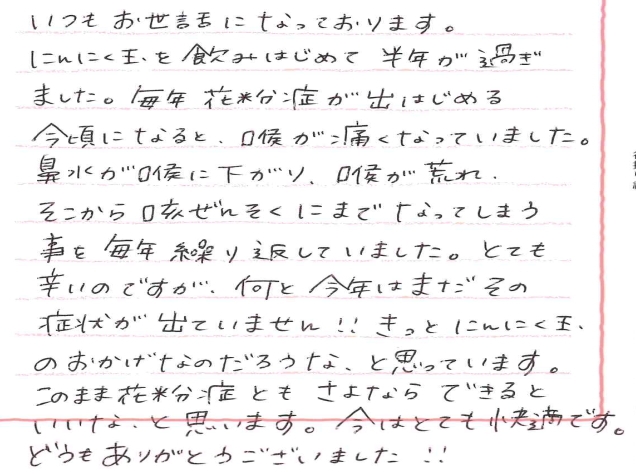 いつもお世話になっております。
にんにく玉を飲みはじめて 半年が過ぎ
ました。毎年 花粉症が出はじめる
今頃になると、口候が痛くなっていました。
鼻水が口候に下がり、口候が荒れ、
そこから咳ぜんそくにまでなってしまう
事を毎年繰り返していました。とても
辛いのですが、何と今年はまだその
症状が出ていません!! きっとにんにく玉、
のおかげなのだろうな、と思っています。
このまま花粉症ともさよならできると
いいな、と思います。今はとても快適です。
どうもありがとうございました!!